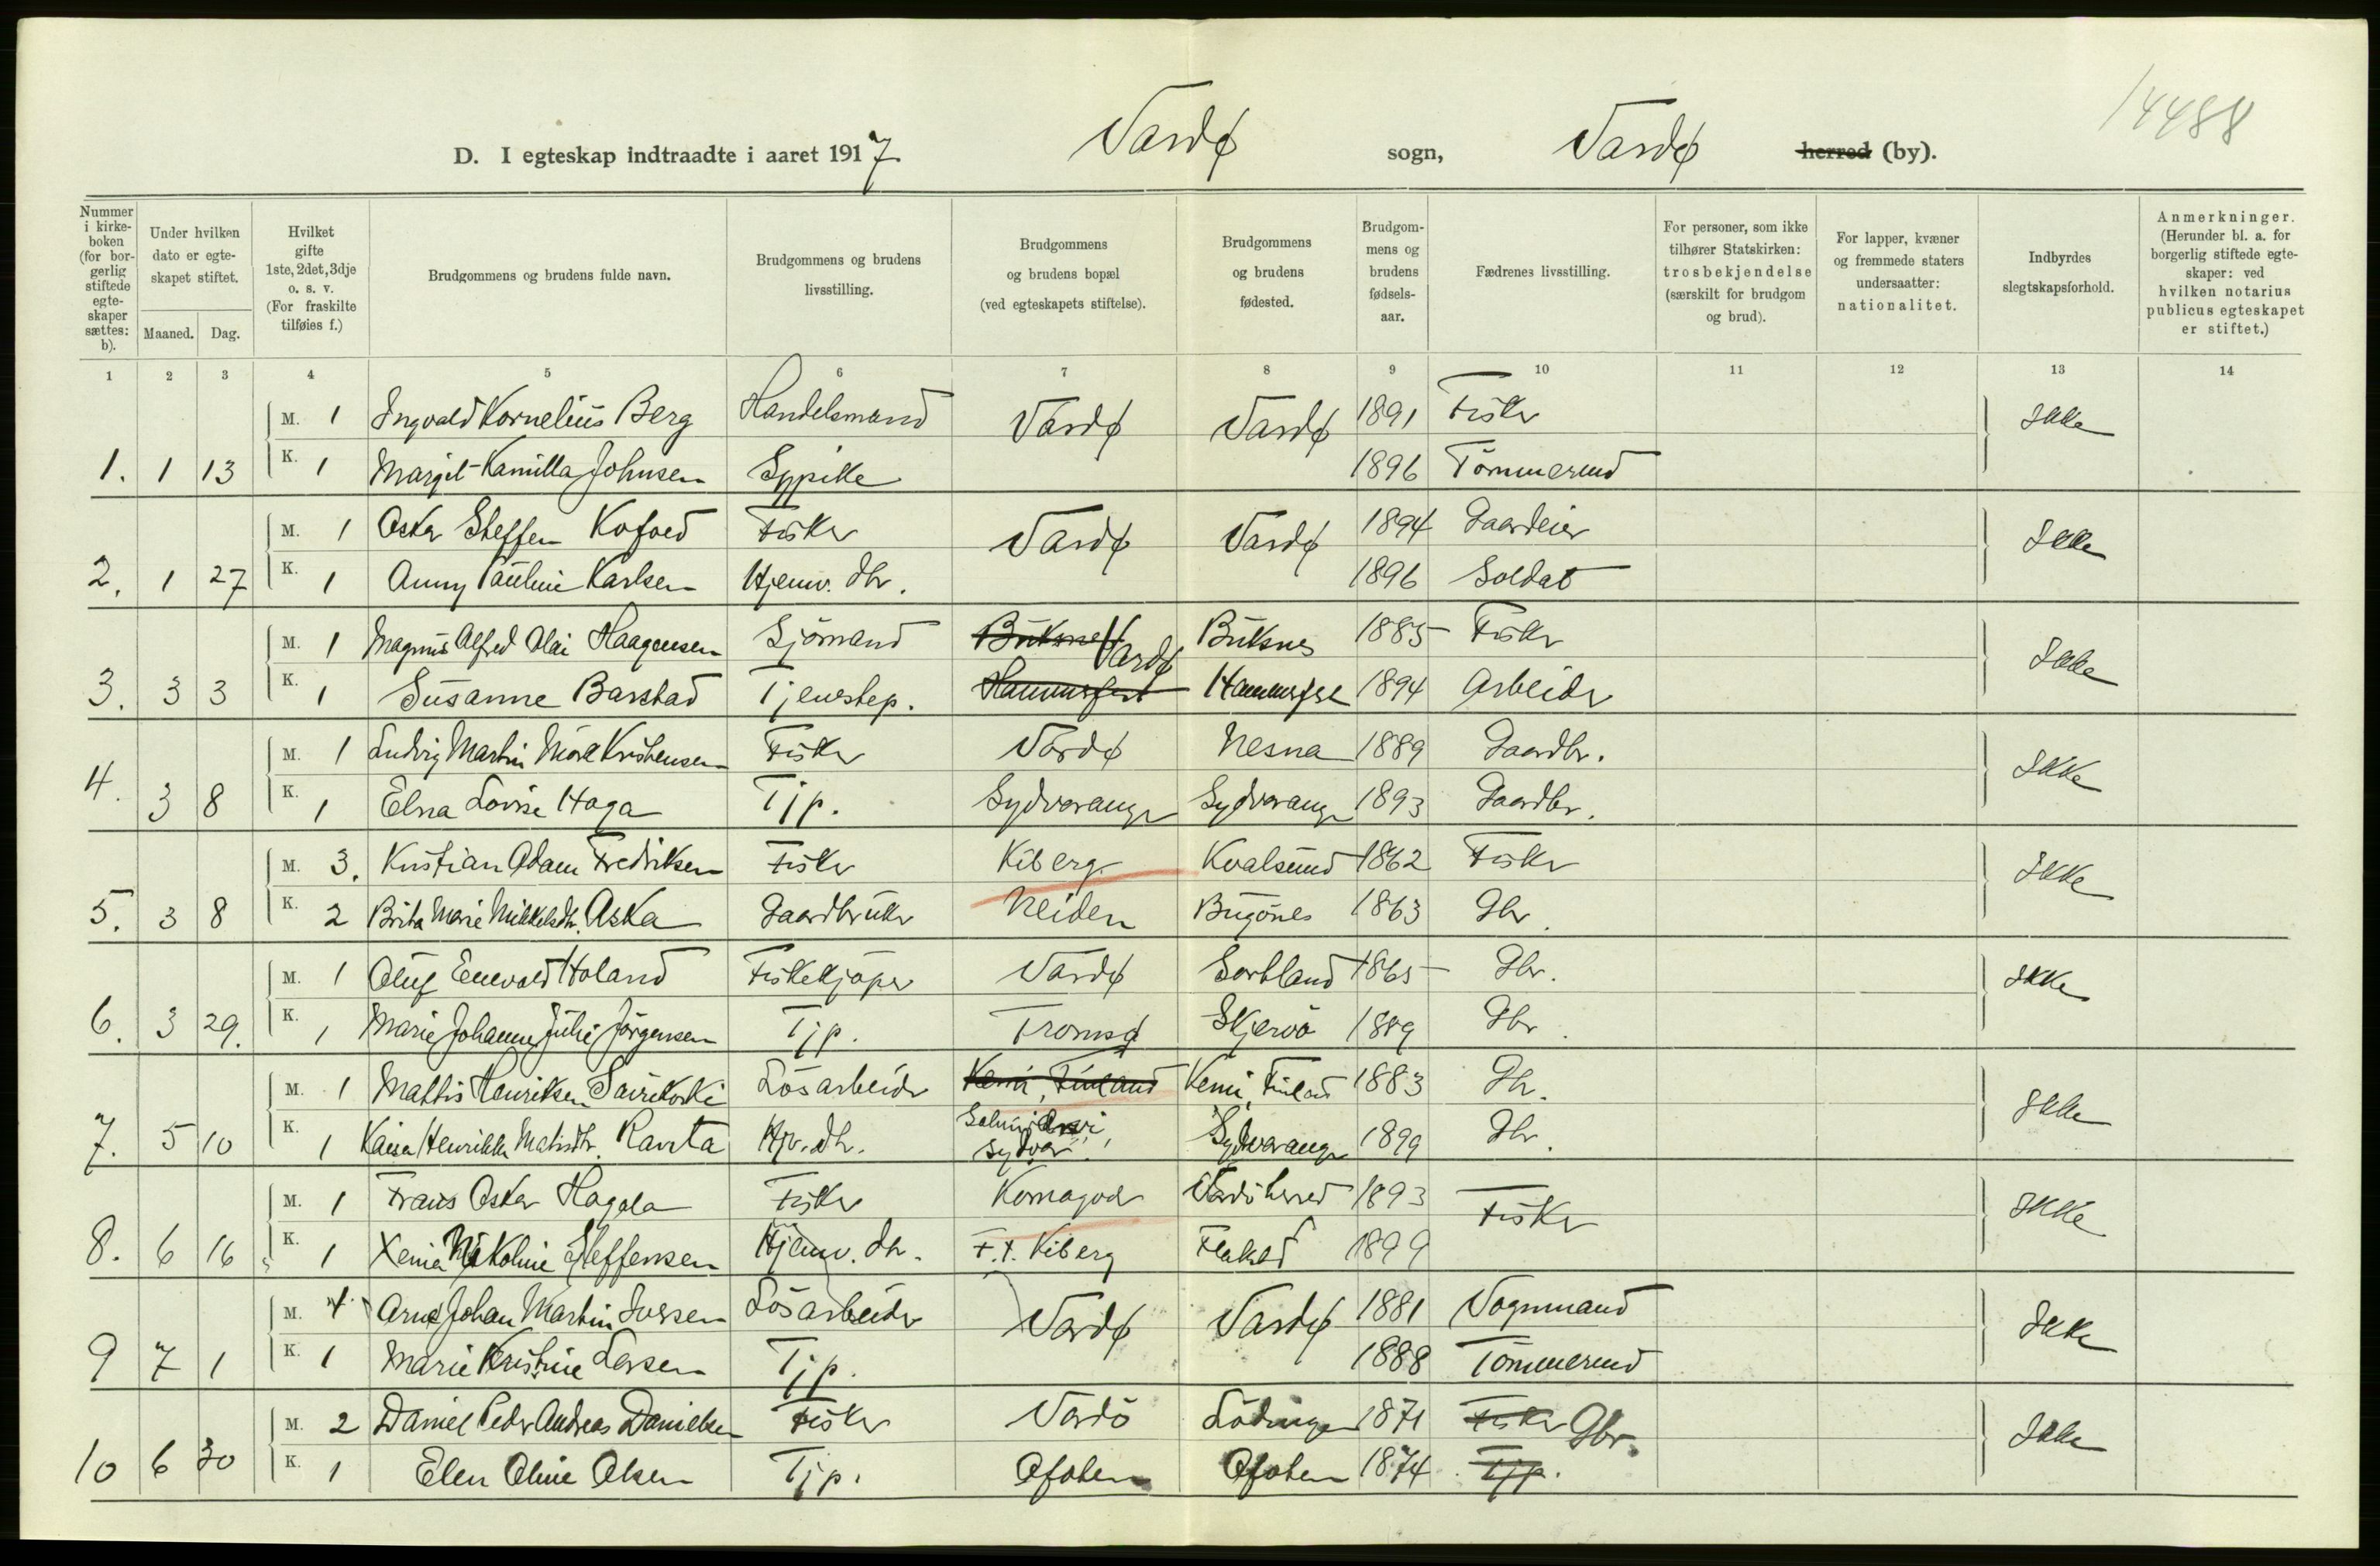 14488
D. I egteskap indtraadte i aaret 1917 Vardø sogn, Vardø herred (by).
Nummer i kirkeboken (for borgerlig stiftede egteskaper sættes: b). Under hvilken dato er egteskapet stiftet. Maaned. Dag. Hvilket gifte 1ste, 2det, 3dje o. s. v. (For fraskilte tilføies f.) Brudgommens og brudens fulde navn. Brudgommens og brudens livsstilling. Brudgommens og brudens bopæl (ved egteskapets stiftelse). Brudgommens og brudens fødested. Brudgommens og brudens fødselsaar. Fædrenes livsstilling. For personer, som ikke tilhører Statskirken: trosbekjendelse (særskilt for brudgom og brud). For lapper, kvæner og fremmede staters undersaatter: nationalitet. Indbyrdes slegtskapsforhold. Anmerkninger. (Herunder bl. a. for borgerlig stiftede egteskaper: ved hvilken notarius publicus egteskapet er stiftet.)
1 2 3 4 5 6 7 8 9 10 11 12 13 14
M. 1 Ingvald Kornelius Berg Handelsmand Vardø Vardø 1891 Fisker Ikke
1. 1 13 K. 1 Margit Kamilla Johnsen Sypike 1896 Tömmermd
M. 1 Oskar Steffen Kofoed Fisker Vardø Vardø 1894 Gaardeier Ikke
2. 1 27 K. 1 Anny Pauline Karlsen Hjemv. dtr. 1896 Soldat
M. 1 Magnus Alfred Olai Haagensen Sjömand Buksnes Vardø Buksnes 1885 Fisker Ikke
3. 3 3 K. 1 Susanne Barstad Tjenestep. Hammerfest Hammerfest 1894 Arbeider
M. 1 Ludvig Martin Moræ Kristensen Fisker Vardø Nesna 1889 Gaardbr. Ikke
4. 3 8 K. 1 Elna Lovise Haga Tjp. Sydvaranger Sydvaranger 1893 Gaardbr.
M. 3. Kristian Adam Fredriksen Fisker Kiberg Kvalsund 1862 Fisker Ikke
5. 3 8 K. 2 Brita Marie Mikkelsdtr. Aska Gaardbruker Neiden Bugönes 1863 Gbr.
M. 1 Oluf Enevold Holand Fiskekjöper Vardø Sortland 1865 Gbr. Ikke
6. 3 29. K. 1 Marie Johanne Julie Jörgensen Tjp. Tromsø Skjervö 1889 Gbr.
M. 1 Mattis Henriksen Sairikoski Lösarbeider Kemi, Finland Kemi, Finland 1883 Gbr. Ikke
7. 5 10 K. 1 Kaisa Henrikka Matisdtr. Ravta Hjv. dtr. Sydvar. Sydvaranger 1899 Gbr.
M. 1 Frans Oskar Hagala Fisker Komagvær Vardö herred 1893 Fisker Ikke
8. 6 16 K. 1 Xenia Nikoline Steffensen Hjemv. dtr. F. t. Kiberg Flakstd 1899
M. 1 Arne Johan Martin Iversen Lösarbeider Vardø Vardø 1881 Vognmand Ikke
9 7 1 K. 1 Marie Kristine Larsen Tjp. 1888 Tömmermd
M. 2 Daniel Peder Andreas Danielsen Fisker Vardö Lödingen 1871 Fisker Gbr. Ikke
10 6 30 K. 1 Elen Oline Olsen Tjp. Ofoten Ofoten 1874 Tjp.